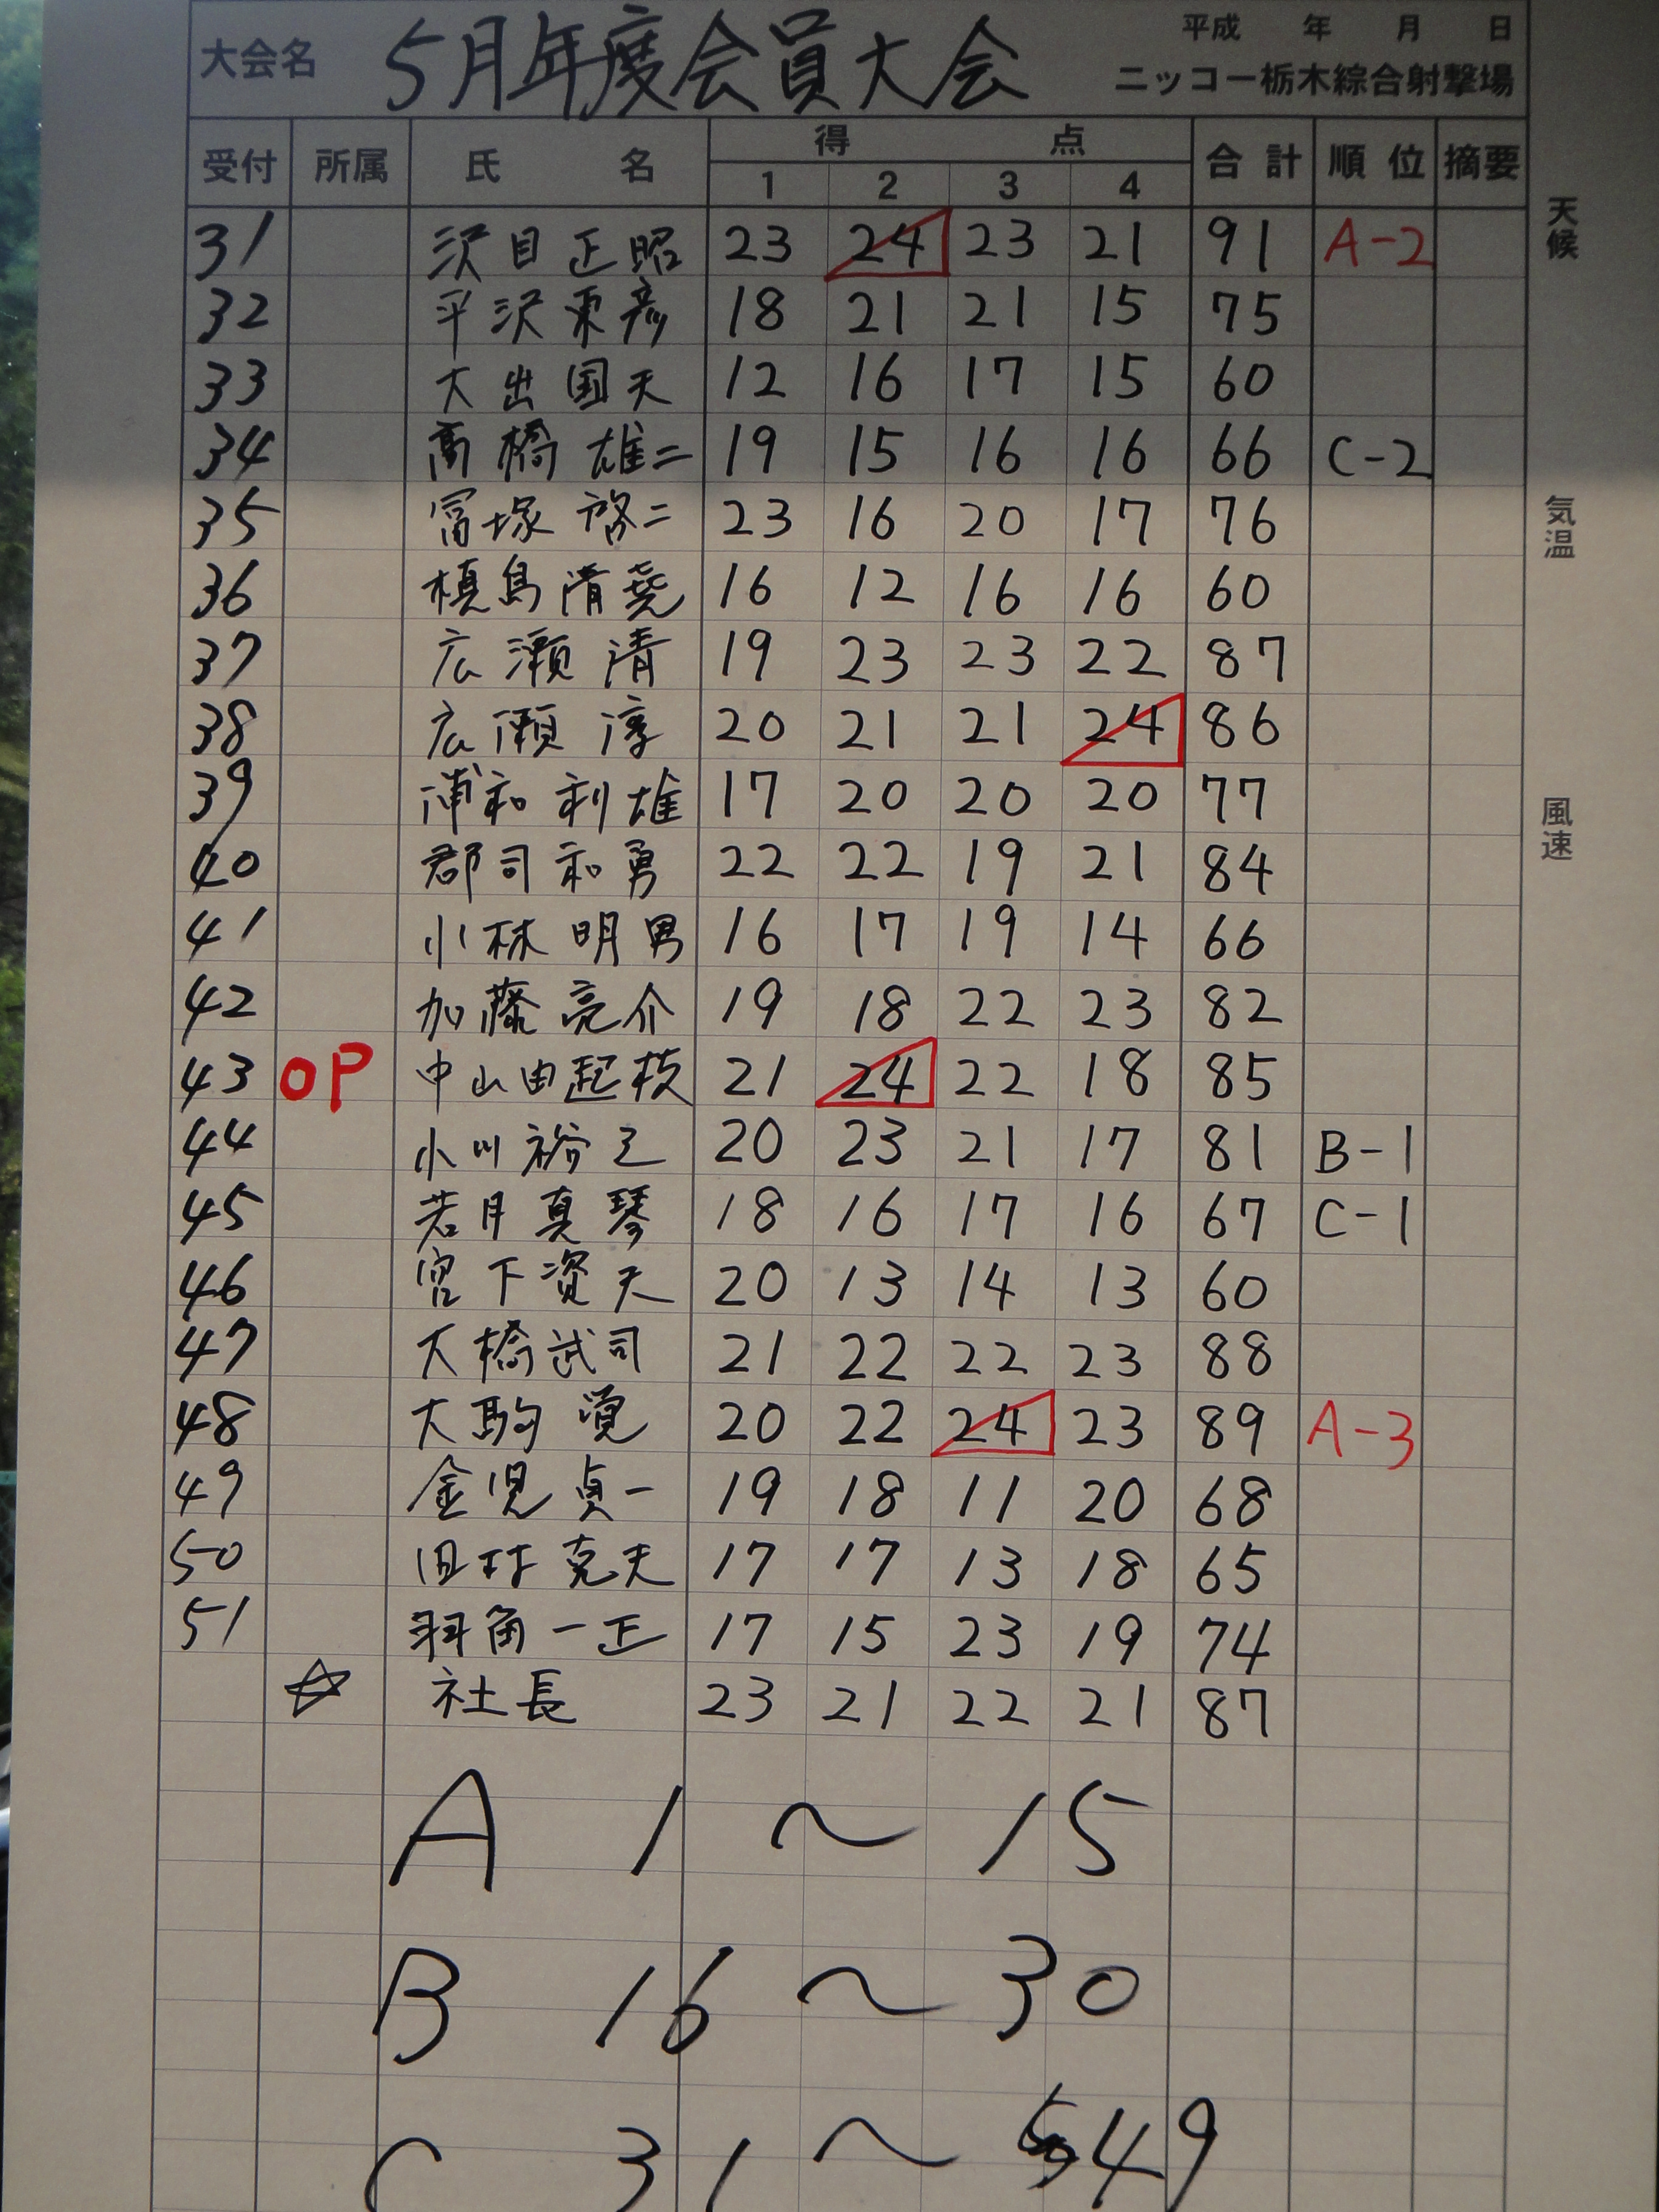 平成 年 月 日
大会名 5月年度会員大会
ニッコー栃木綜合射撃場
受付 所属 氏名 得点 合計 順位 摘要
1 2 3 4
31 沢目正昭 23 24 23 21 91 A-2
32 平沢東彦 18 21 21 15 75
33 大出国夫 12 16 17 15 60
34 高橋雄二 19 15 16 16 66 C-2
35 冨塚啓二 23 16 20 17 76
36 槙島清 16 12 16 16 60
37 広瀬清 19 23 23 22 87
38 広瀬淳 20 21 21 24 86
39 浦和利雄 17 20 20 20 77
40 郡司和勇 22 22 19 21 84
41 小林明男 16 17 19 14 66
42 加藤亮介 19 18 22 23 82
43 OP 中山由起枝 21 24 22 18 85
44 小川裕之 20 23 21 17 81 B-1
45 若月真琴 18 16 17 16 67 C-1
46 宮下資夫 20 13 14 13 60
47 大橋武司 21 22 22 23 88
48 大駒 20 22 24 23 89 A-3
49 金児貞一 19 18 11 20 68
50 田村克夫 17 17 13 18 65
51 羽角一正 17 15 23 19 74
☆ 社長 23 21 22 21 87
A 1～15
B 16～30
C 31～49
天候
気温
風速